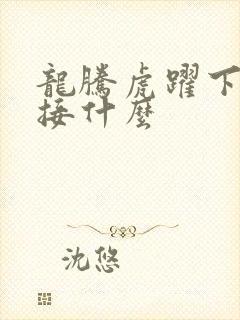 龍騰虎躍下
接什麼
沈悠